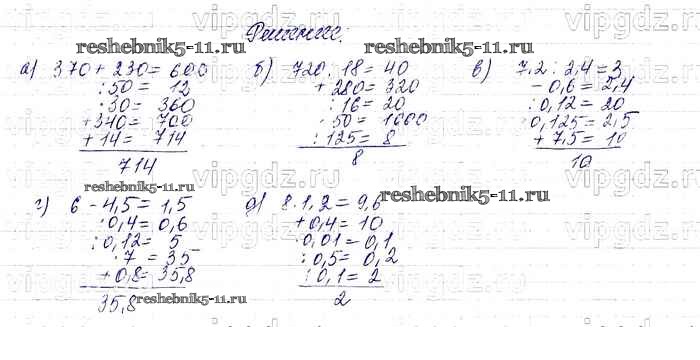 Решение.
а) 370 + 230 = 600
: 50 = 12
· 30 = 360
+ 340 = 700
+ 14 = 714
714
б) 720 : 18 = 40
+ 280 = 320
: 16 = 20
· 50 = 1000
: 125 = 8
8
в) 7,2 : 2,4 = 3
- 0,6 = 2,4
: 0,12 = 20
· 0,125 = 2,5
+ 7,5 = 10
10
г) 6 - 4,5 = 1,5
· 0,4 = 0,6
: 0,12 = 5
· 7 = 35
+ 0,8 = 35,8
35,8
д) 8 · 1,2 = 9,6
+ 0,4 = 10
· 0,01 = 0,1
: 0,5 = 0,2
: 0,1 = 2
2
reshebnik5-11.ru.
reshebnik5-11.ru.
reshebnik5-11.ru.
reshebnik5-11.ru.
reshebnik5-11.ru
vipgdz.ru